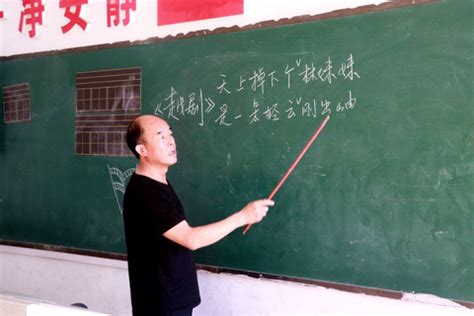 净安静
天上掉下个“林妹妹
《越剧》是一朵轻云”刚出岫